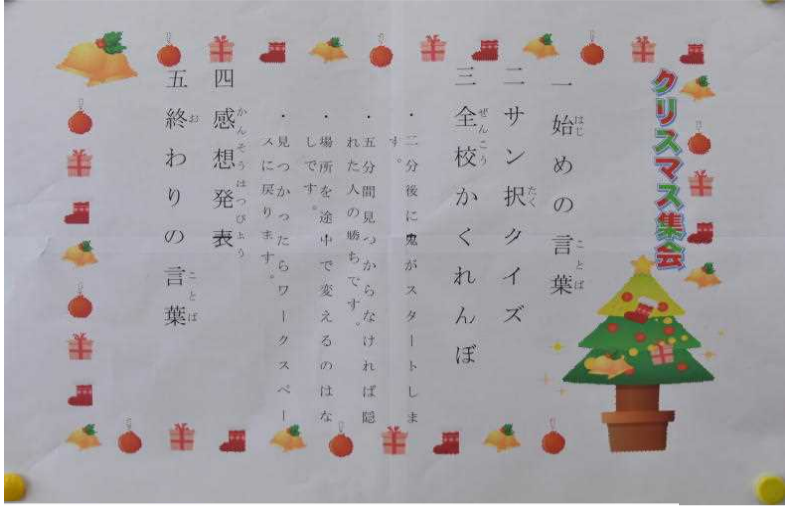 クリスマス集会
一 始めの言葉
二 サン択クイズ
三 全校かくれんぼ
・二分後に鬼がスタートしま
す。
・五分間見つからなければ隠
れた人の勝ちです。
・場所を途中で変えるのはな
しです。
・見つかったらワークスペー
スに戻ります。
四 感想発表
五 終わりの言葉